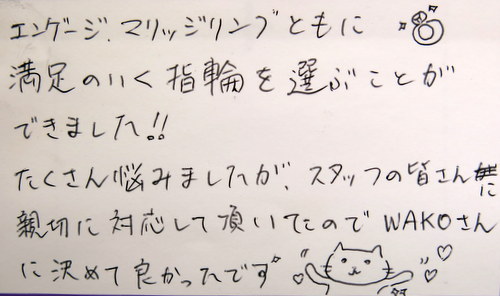 エンゲージ、マリッジリングともに
満足のいく指輪を選ぶことが
できました!!
たくさん悩みましたが、スタッフの皆さんに
親切に対応して頂いてたのでWAKOさん
に決めて良かったです